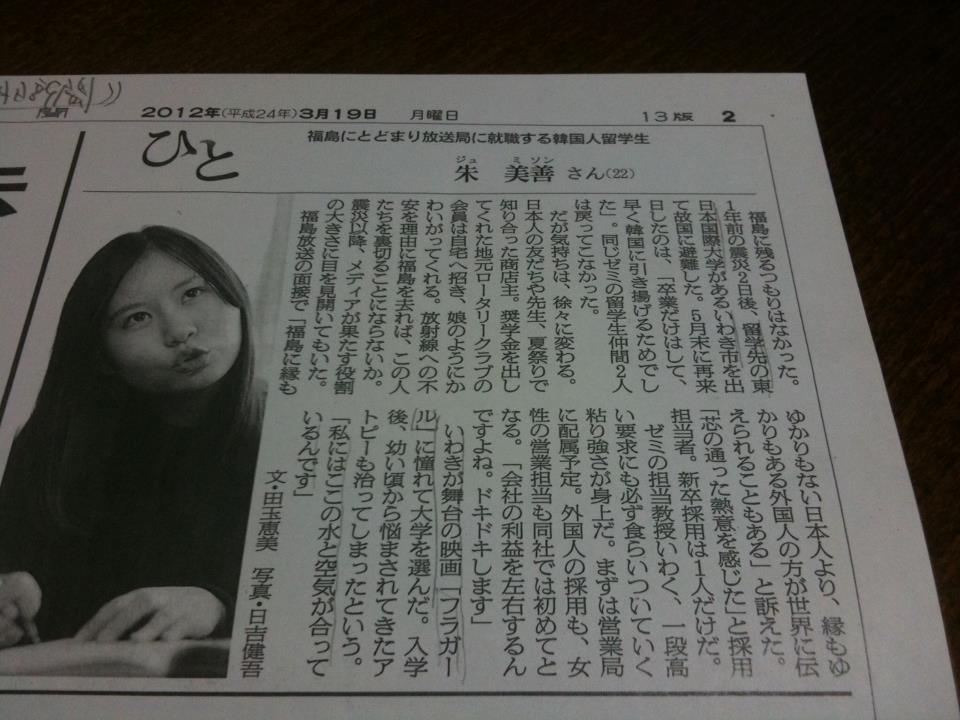 2012年(平成24年)3月19日 月曜日 13版 2
ひと
福島にとどまり放送局に就職する韓国人留学生
ジュ ミソン
朱 美善さん(22)
福島に残るつもりはなかった。
1年前の震災2日後、留学先の東
日本国際大学があるいわき市を出
て故国に避難した。5月末に再来
日したのは、「卒業だけはして、
早く韓国に引き揚げるためでし
た」。同じゼミの留学生仲間2人
は戻ってこなかった。
だが気持ちは、徐々に変わる。
日本人の友だちや先生、夏祭りで
知り合った商店主。奨学金を出し
てくれた地元ロータリークラブの
会員は自宅へ招き、娘のようにか
わいがってくれる。放射線への不
安を理由に福島を去れば、この人
たちを裏切ることにならないか。
震災以降、メディアが果たす役割
の大きさに目を見開いてもいた。
福島放送の面接で「福島に縁も
ゆかりもない日本人より、縁もゆ
かりもある外国人の方が世界に伝
えられることもある」と訴えた。
「芯の通った熱意を感じた」と採用
担当者。新卒採用は1人だけだ。
ゼミの担当教授いわく、一段高
い要求にも必ず食らいついていく
粘り強さが身上だ。まずは営業局
に配属予定。外国人の採用も、女
性の営業担当も同社では初めてと
なる。「会社の利益を左右するん
ですよね。ドキドキします」
いわきが舞台の映画「フラガー
ル」に憧れて大学を選んだ。入学
後、幼い頃から悩まされてきたア
トピーも治ってしまったという。
「私にはここの水と空気が合って
いるんです」
文・田玉恵美 写真・日吉健吾